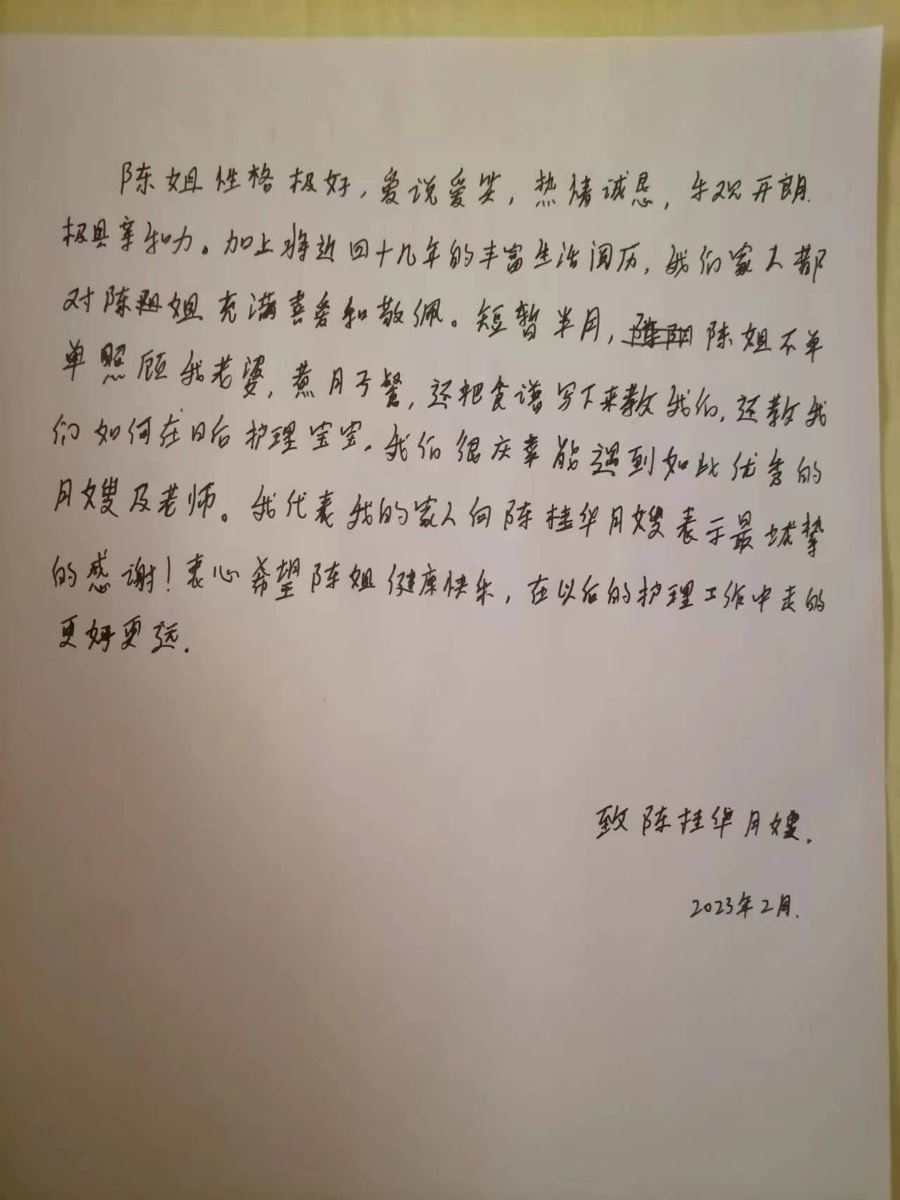 陈姐性格极好，爱说爱笑，热情诚恳，乐观开朗
极具亲和力。加上将近四十几年的丰富生活阅历，我们家人都
对陈姐充满喜爱和敬佩。短暂半月，陈姐不单
单照顾我老婆，煮月子餐，还把食谱写下来教我们，还教我
们如何在日后护理宝宝。我们很庆幸能遇到如此优秀的
月嫂及老师。我代表我的家人向陈桂华月嫂表示最诚挚
的感谢！衷心希望陈姐健康快乐，在以后的护理工作中走的
更好更远.
致陈桂华月嫂.
2023年2月.